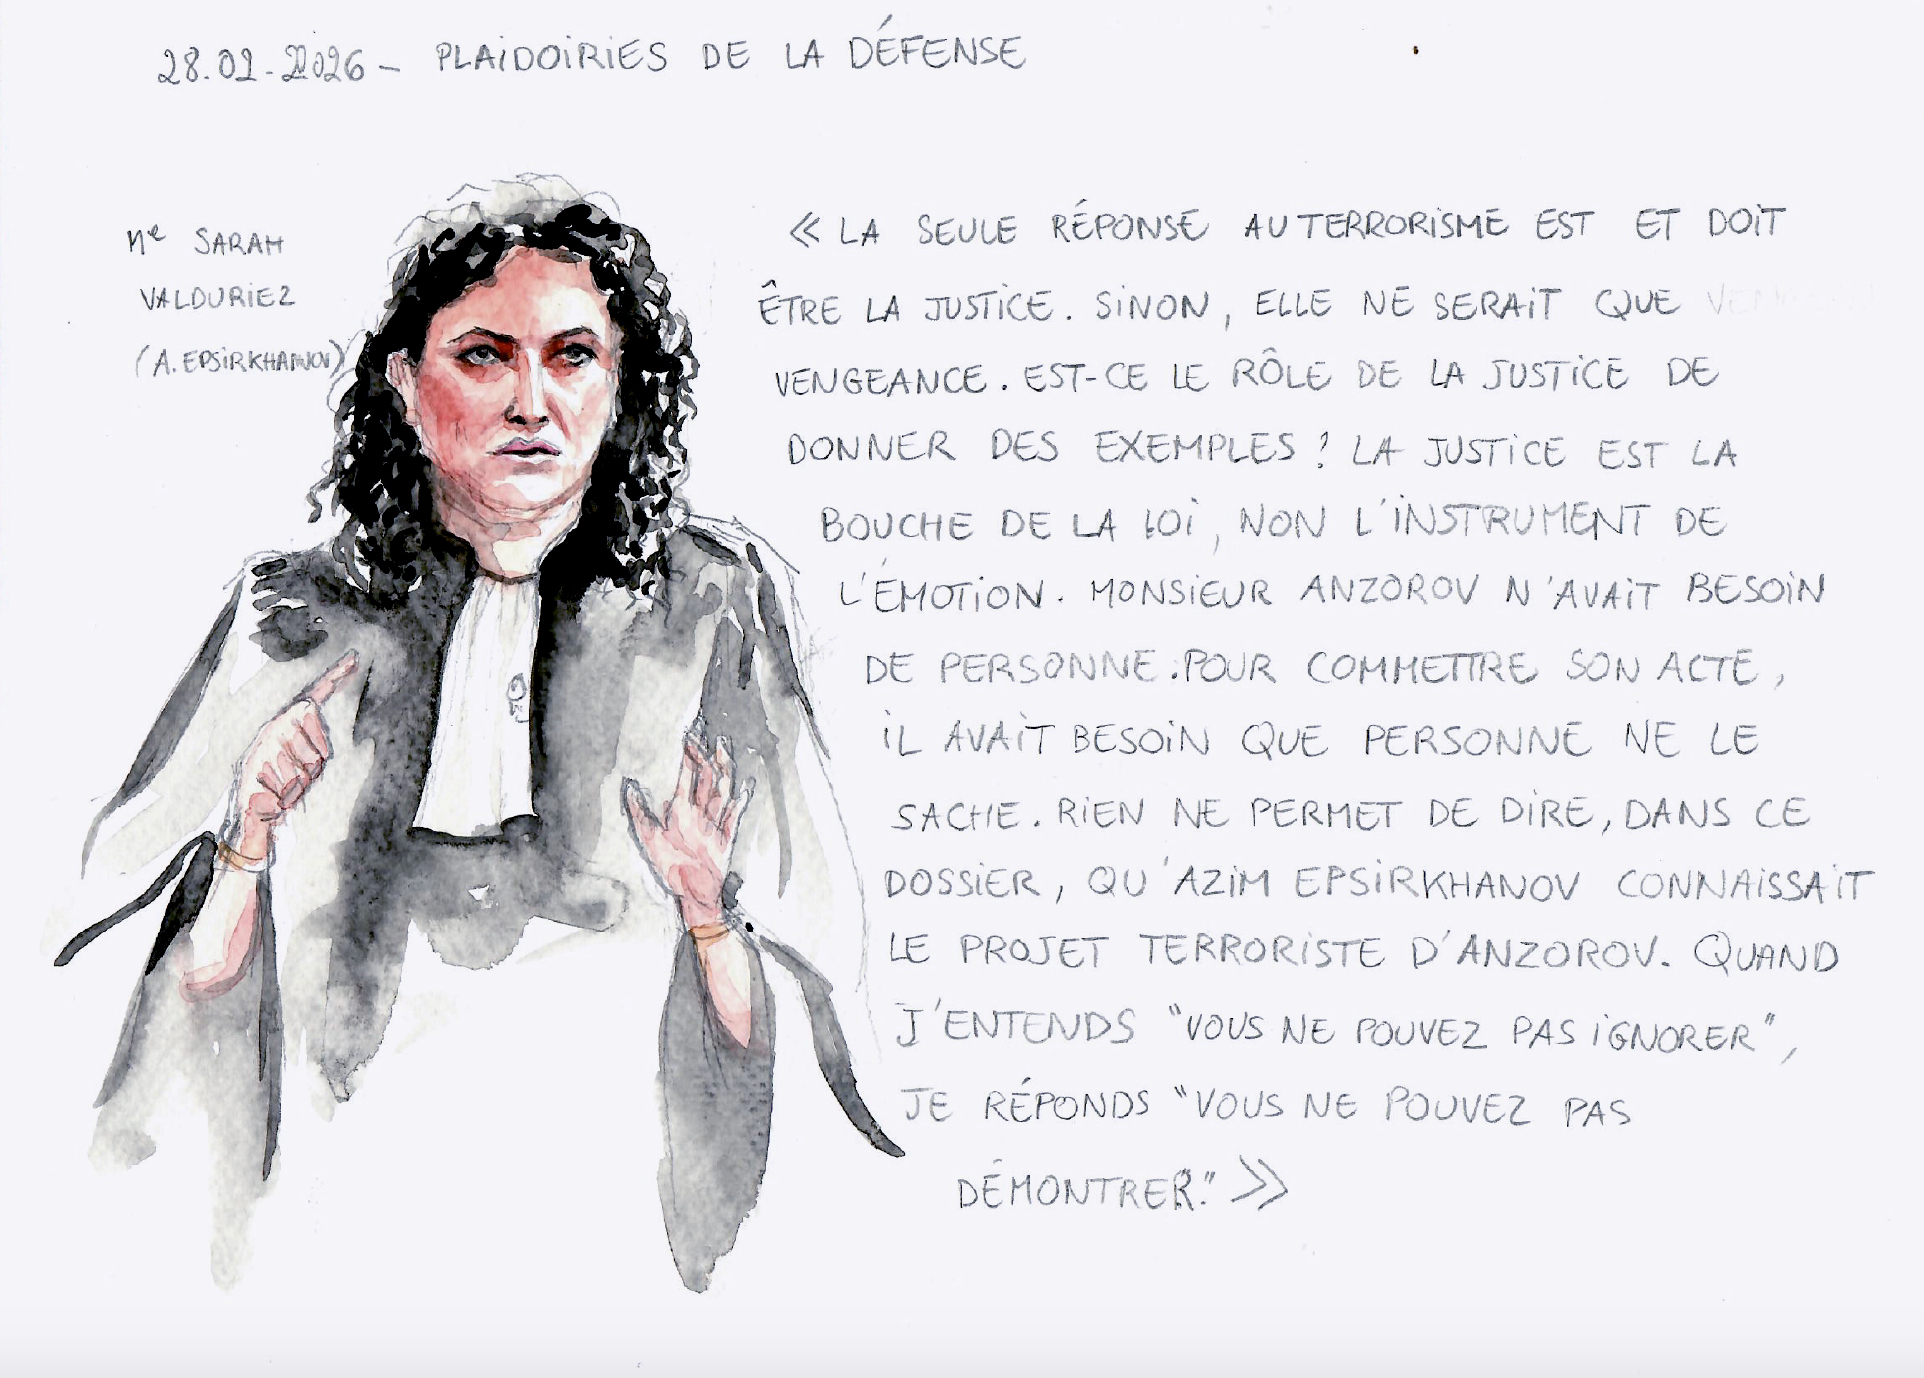 28.02.2026 - PLAIDOIRIES DE LA DÉFENSE
Me SARAH
VALDURIEZ
(A. EPSIRKHANOV)
« LA SEULE RÉPONSE AU TERRORISME EST ET DOIT
ÊTRE LA JUSTICE. SINON, ELLE NE SERAIT QUE
VENGEANCE. EST-CE LE RÔLE DE LA JUSTICE DE
DONNER DES EXEMPLES ? LA JUSTICE EST LA
BOUCHE DE LA LOI, NON L'INSTRUMENT DE
L'ÉMOTION. MONSIEUR ANZOROV N'AVAIT BESOIN
DE PERSONNE. POUR COMMETTRE SON ACTE,
IL AVAIT BESOIN QUE PERSONNE NE LE
SACHE. RIEN NE PERMET DE DIRE, DANS CE
DOSSIER, QU'AZIM EPSIRKHANOV CONNAISSAIT
LE PROJET TERRORISTE D'ANZOROV. QUAND
J'ENTENDS "VOUS NE POUVEZ PAS IGNORER",
JE RÉPONDS "VOUS NE POUVEZ PAS
DÉMONTRER." »